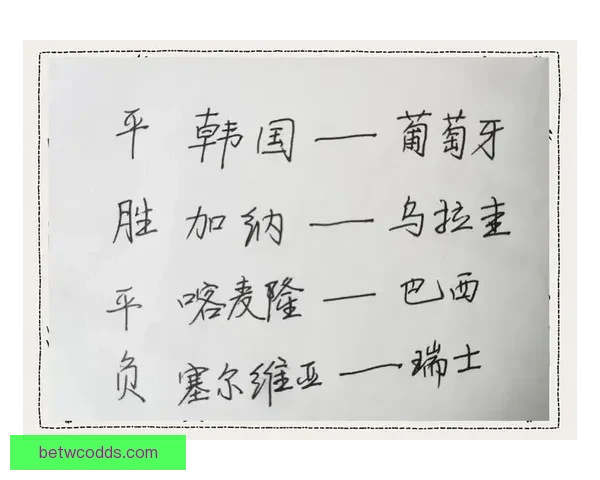 平 韩国 — 葡萄牙
胜 加纳 — 乌拉圭
平 喀麦隆 — 巴西
负 塞尔维亚 — 瑞士
betwcodds.com